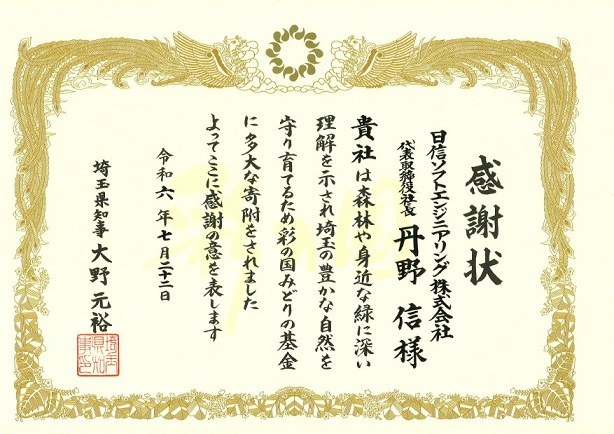 感謝状
日信ソフトエンジニアリング株式会社
代表取締役社長 丹野 信様
貴社は森林や身近な緑に深い
理解を示され埼玉の豊かな自然を
守り育てるため彩の国みどりの基金
に多大な寄附をされました
よってここに感謝の意を表します
令和六年七月二十二日
埼玉県知事 大野元裕